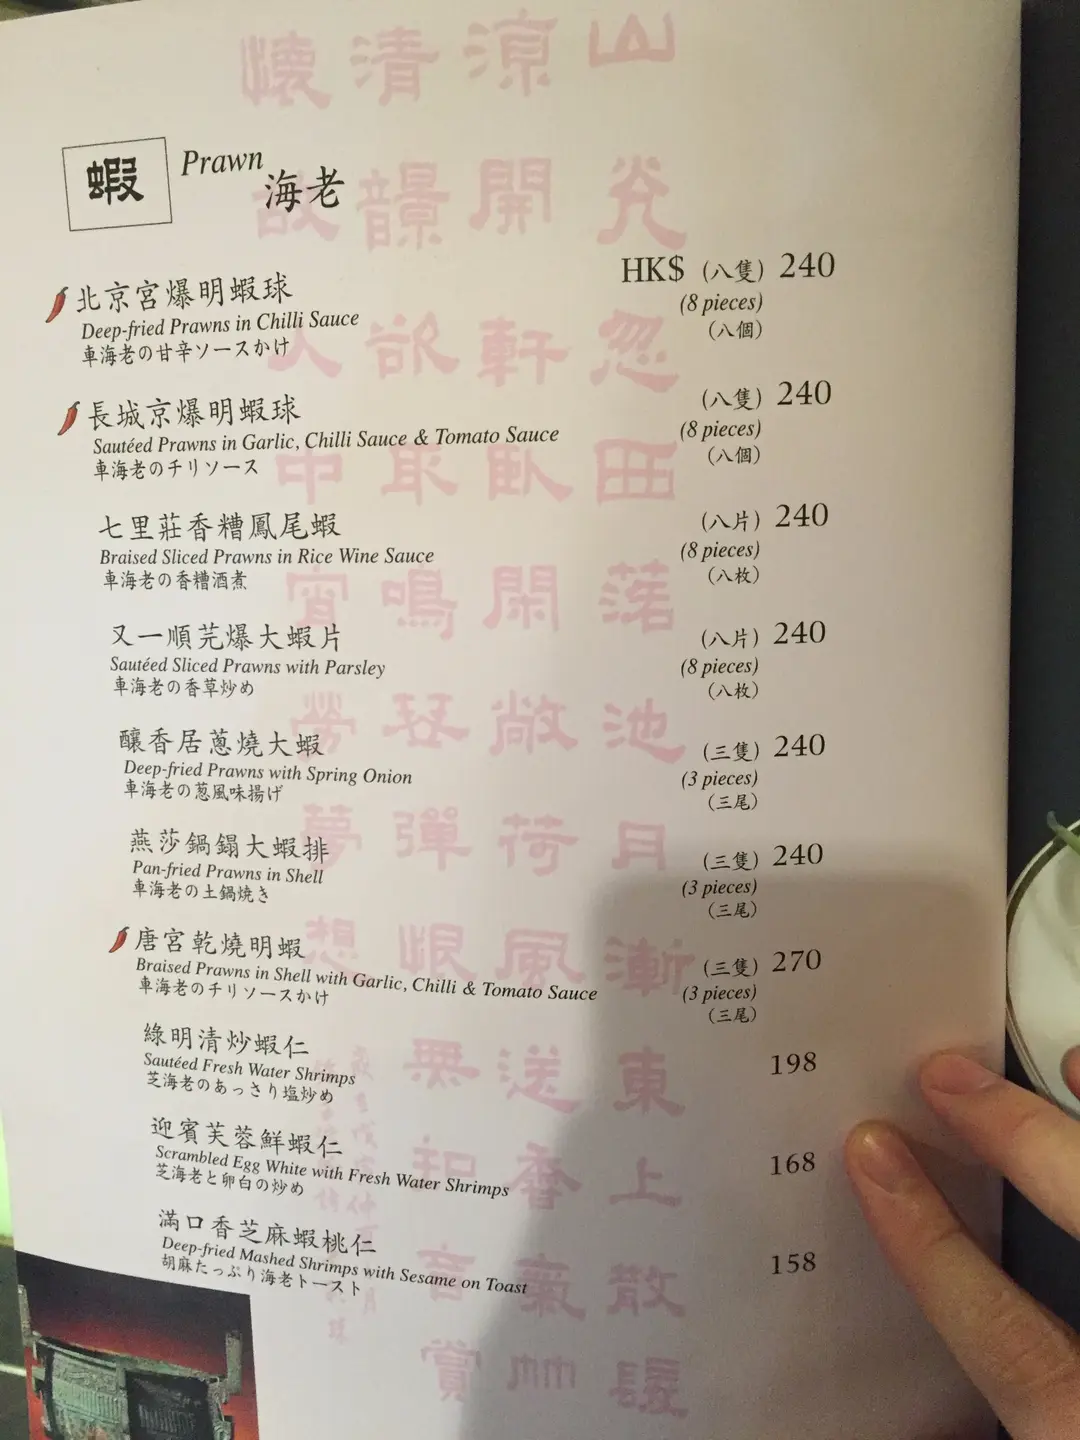 蝦 Prawn
海老
HK$ (八隻) 240
北京宮爆明蝦球
(8 pieces)
Deep-fried Prawns in Chilli Sauce
(八個)
車海老の甘辛ソースかけ
長城京爆明蝦球 (八隻) 240
Sautéed Prawns in Garlic, Chilli Sauce & Tomato Sauce (8 pieces)
車海老のチリソース (八個)
七里莊香糟鳳尾蝦 (八片) 240
Braised Sliced Prawns in Rice Wine Sauce (8 pieces)
車海老の香糟酒煮 (八枚)
又一順芫爆大蝦片 (八片) 240
Sautéed Sliced Prawns with Parsley (8 pieces)
車海老の香草炒め (八枚)
釀香居蔥燒大蝦 (三隻) 240
Deep-fried Prawns with Spring Onion (3 pieces)
車海老の葱風味揚げ (三尾)
燕莎鍋鎉大蝦排 (三隻) 240
Pan-fried Prawns in Shell (3 pieces)
車海老の土鍋焼き (三尾)
唐宮乾燒明蝦 (三隻) 270
Braised Prawns in Shell with Garlic, Chilli & Tomato Sauce (3 pieces)
車海老のチリソースかけ (三尾)
綠明清炒蝦仁 198
Sautéed Fresh Water Shrimps
芝海老のあっさり塩炒め
迎賓芙蓉鮮蝦仁 168
Scrambled Egg White with Fresh Water Shrimps
芝海老と卵白の炒め
滿口香芝麻蝦桃仁 158
Deep-fried Mashed Shrimps with Sesame on Toast
胡麻たっぷり海老トースト
山光忽西落池月漸東上散髮
涼開軒臥閑敞荷風送香氣
清欲取鳴琴彈恨無知音賞
懷故人中宵勞夢想